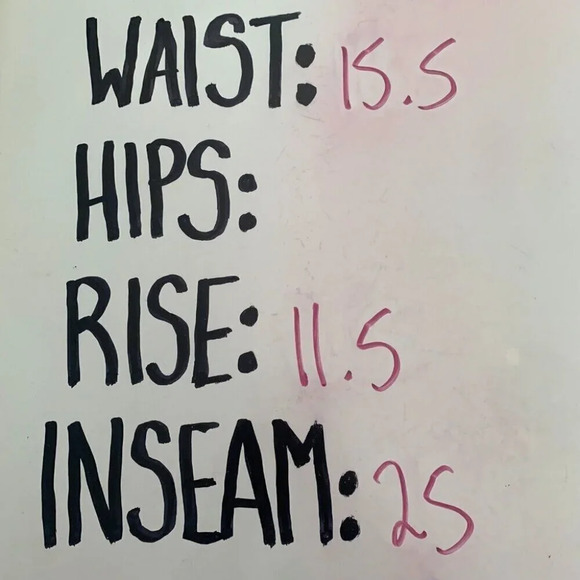 WAIST: 15.5
HIPS:
RISE: 11.5
INSEAM: 25